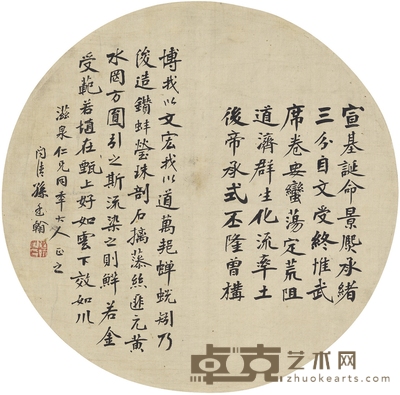 宣基誕命景熙承緒
三分自文受終惟武
席卷要蠻蕩定荒阻
道濟群生化流率土
後帝承式丕隆曾構
博我以文宏我以道萬邦蟬蛻矧乃
後造鑽蚌瑩珠剖石摛藻絲匪元黃
水罔方圓引之斯流染之則鮮若金
受範若埴在甄上好如雲下效如川
滋泉仁兄同年大人正之
閬清孫廷翰
卓克艺术网
www.zhuokearts.com